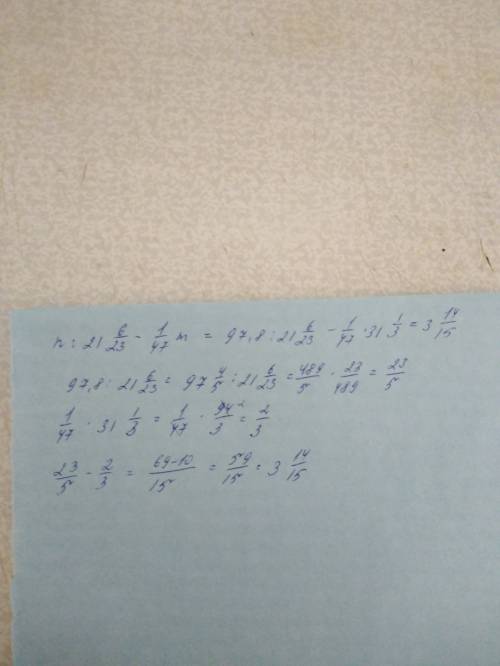 n : 21 6/23 - 1/47 m = 97,8 : 21 6/23 - 1/47 · 31 1/3 = 3 14/15
97,8 : 21 6/23 = 97 4/5 : 21 6/23 = 489/5 · 23/489 = 23/5
1/47 · 31 1/3 = 1/47 · 94²/3 = 2/3
23/5 - 2/3 = 69-10/15 = 59/15 = 3 14/15